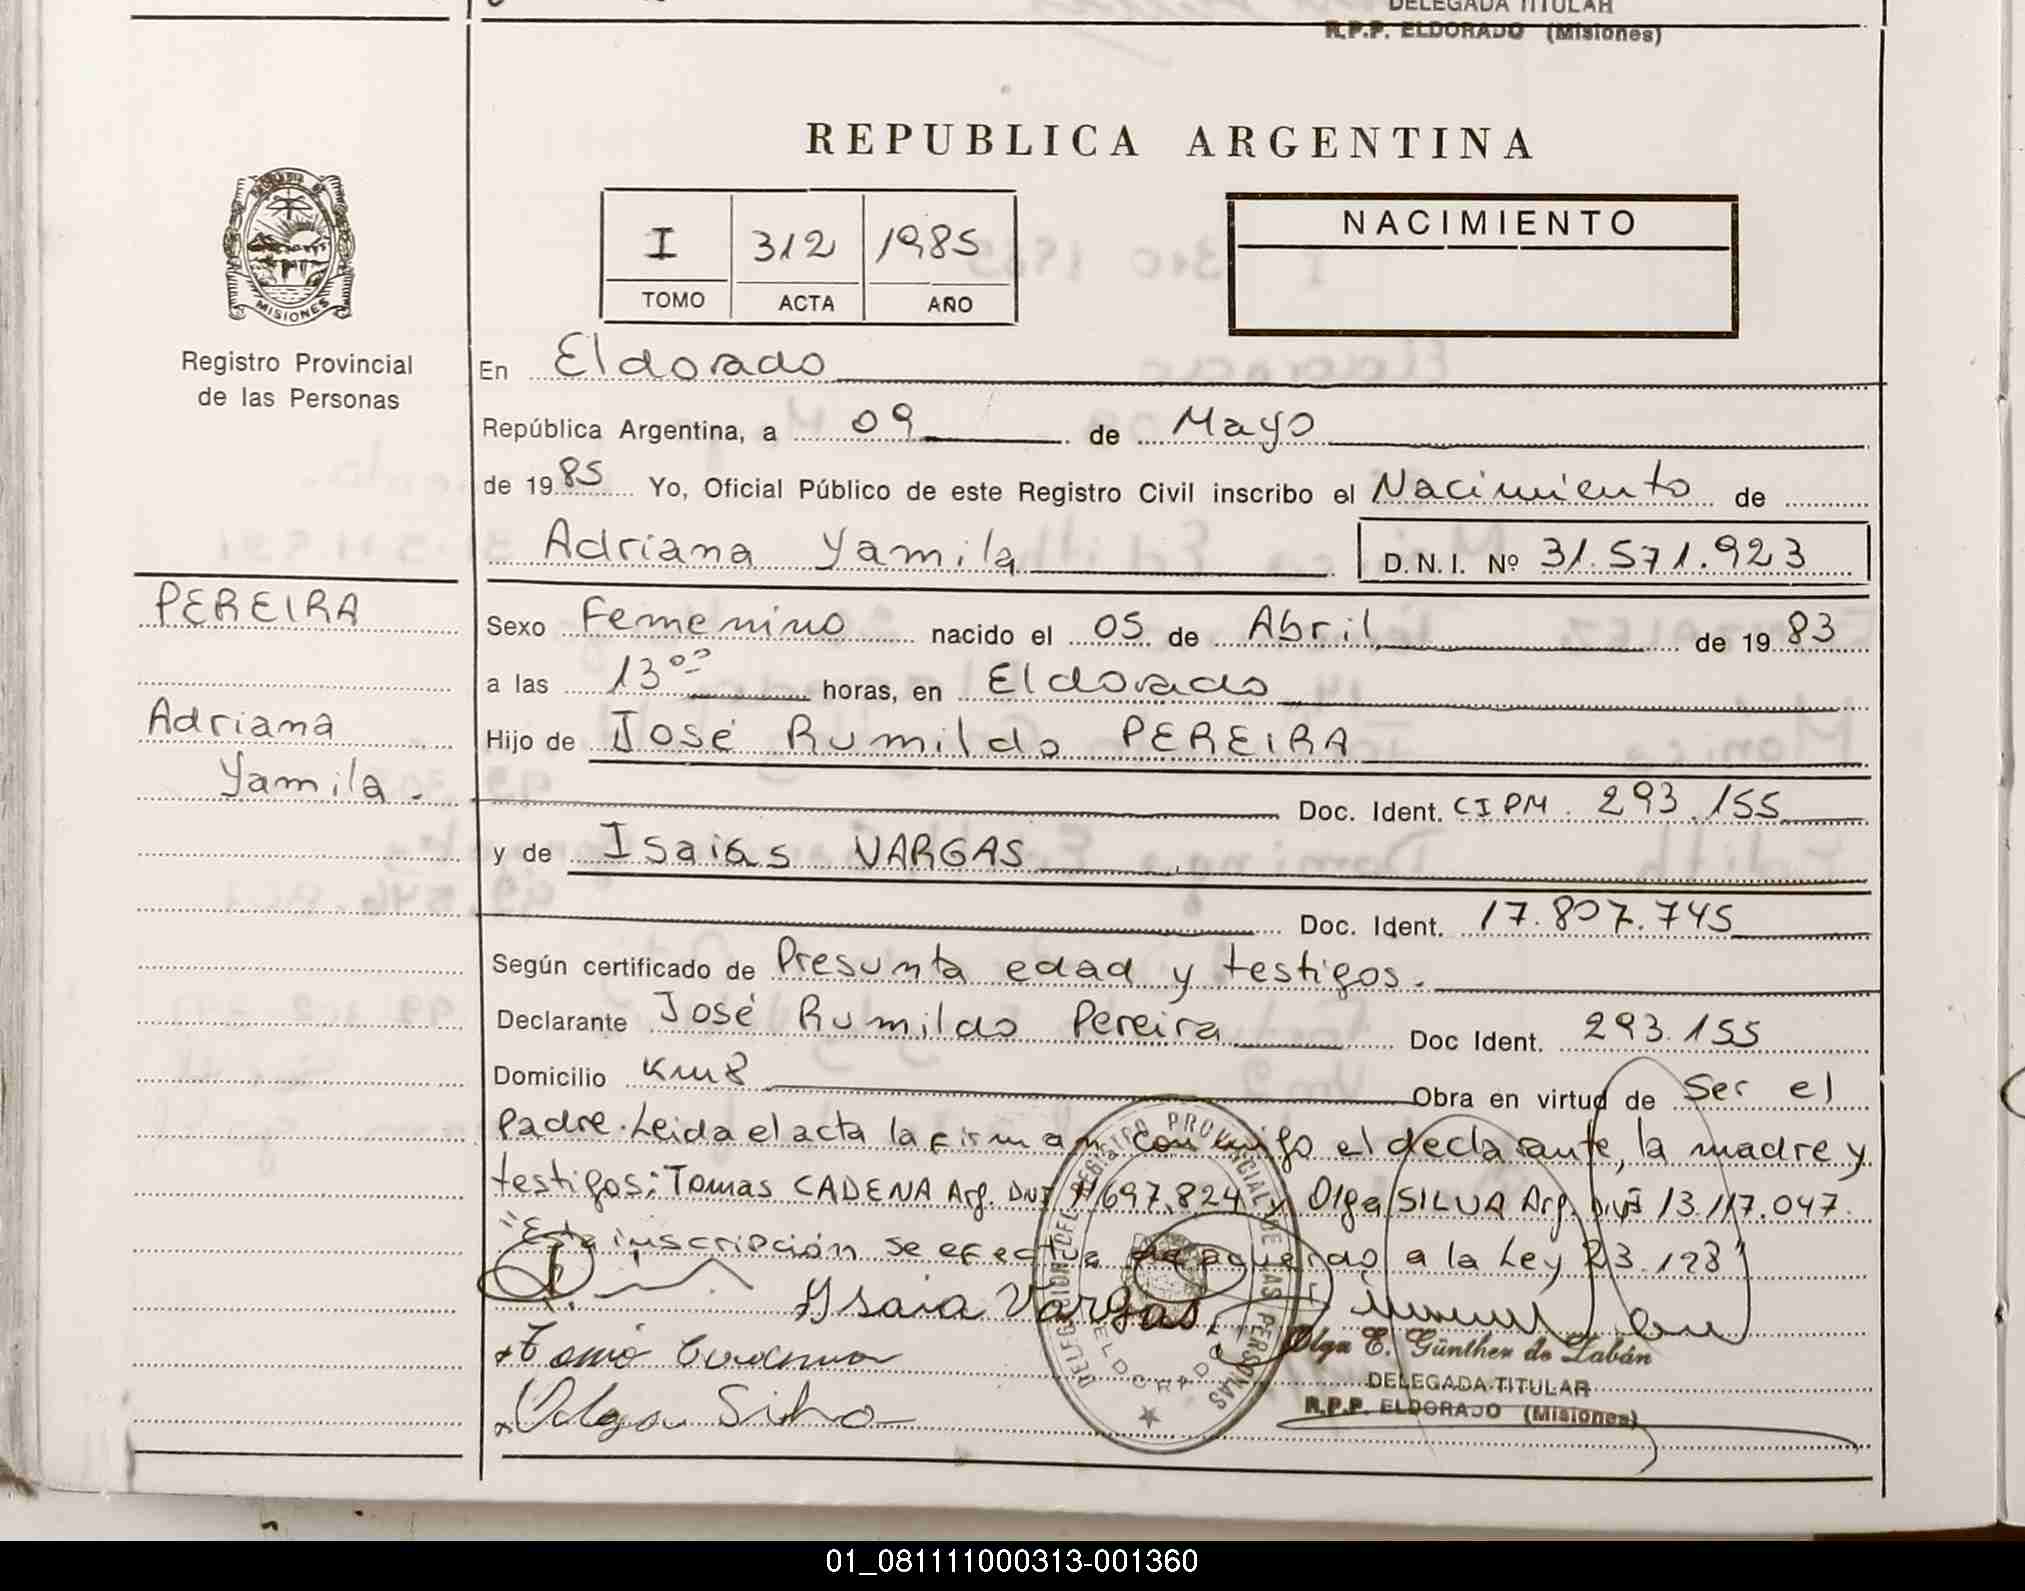 DELEGADA TITULAR
R.P.P. ELDORADO (Misiones)
REPUBLICA ARGENTINA
NACIMIENTO
I 312 1985
TOMO ACTA AÑO
MISIONES
Registro Provincial
de las Personas
En Eldorado
República Argentina, a 09 de Mayo
de 1985 Yo, Oficial Público de este Registro Civil inscribo el Nacimiento de
Adriana Yamila D.N.I. Nº 31.571.923
PEREIRA
Adriana
Yamila.
Sexo Femenino nacido el 05 de Abril de 1983
a las 13 00 horas, en Eldorado
Hijo de José Rumildo PEREIRA
Doc. Ident. CIPM. 293.155
y de Isaias VARGAS
Doc. Ident. 17.807.745
Según certificado de Presunta edad y testigos.
Declarante José Rumildo Pereira Doc Ident. 293.155
Domicilio Km 8 Obra en virtud de Ser el
padre. Leida el acta la firman conmigo el declarante, la madre y
testigos: Tomas CADENA Arg. DNI 11697.824 y Olga SILVA Arg. DNI 13.117.047.
"Esta inscripción se efectua de acuerdo a la Ley 23.128"
Ysaia Vargas
Olga Silva
DELEGACION DEL REGISTRO PROVINCIAL DE LAS PERSONAS
ELDORADO
Olga E. Günther de Labán
DELEGADA TITULAR
R.P.P. ELDORADO (Misiones)
01_081111000313-001360